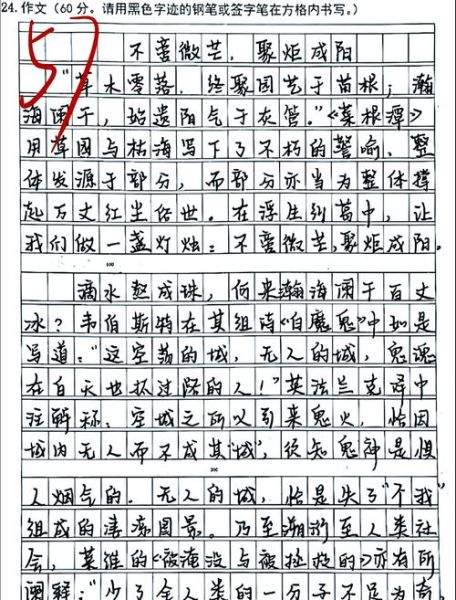 24.作文(60分。请用黑色字迹的钢笔或签字笔在方格内书写。)
57
不啻微芒,聚炬成阳
"草木零落,终聚园艺于苗根;瀚
海阑干,始遗阳气于灰管。"《菜根谭》
用草园与枯海写下了不朽的警喻,整
体发源于部分,而部分亦当为整体撑
起万丈红尘俗世。在浮生纠葛中,让
我们做一盏灯烛:不啻微芒,聚炬成阳。
滴水愁成珠,何来瀚海阑干百丈
冰?韦伯斯特在其组诗《白魔鬼》中如是
写道:"这空荡的城,无人的城,鬼魂
在白天也抓过路的人!"英法兰克译中
注解称:空城之所以引来鬼火,恰因
城内无人而不成其"城",须知鬼神是惧
300
人烟气的。无人的城,恰是失了"个我"
组成的凄凉图景。乃至溯洄至人类社
会,莱维的《被淹没与被拯救的》亦有所
阐释:"少了全人类的一分子不足为奇,